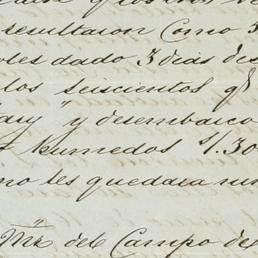 resultaron Como 3
dado 3 dias des
los seiscientos qq
ary" y desembarco
humedos 1/.30
no les quedara nin
Mr. del Campo de